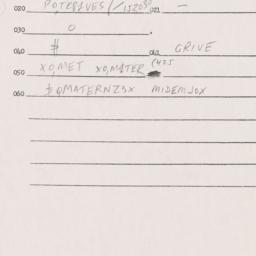 020 POTRBIVES(/1520SP 021 —
030 0 .
040 # 042 GRIVE
050 XO,MET XO,MATER (425
060 #QMATERNZ3X MIDEMJOX